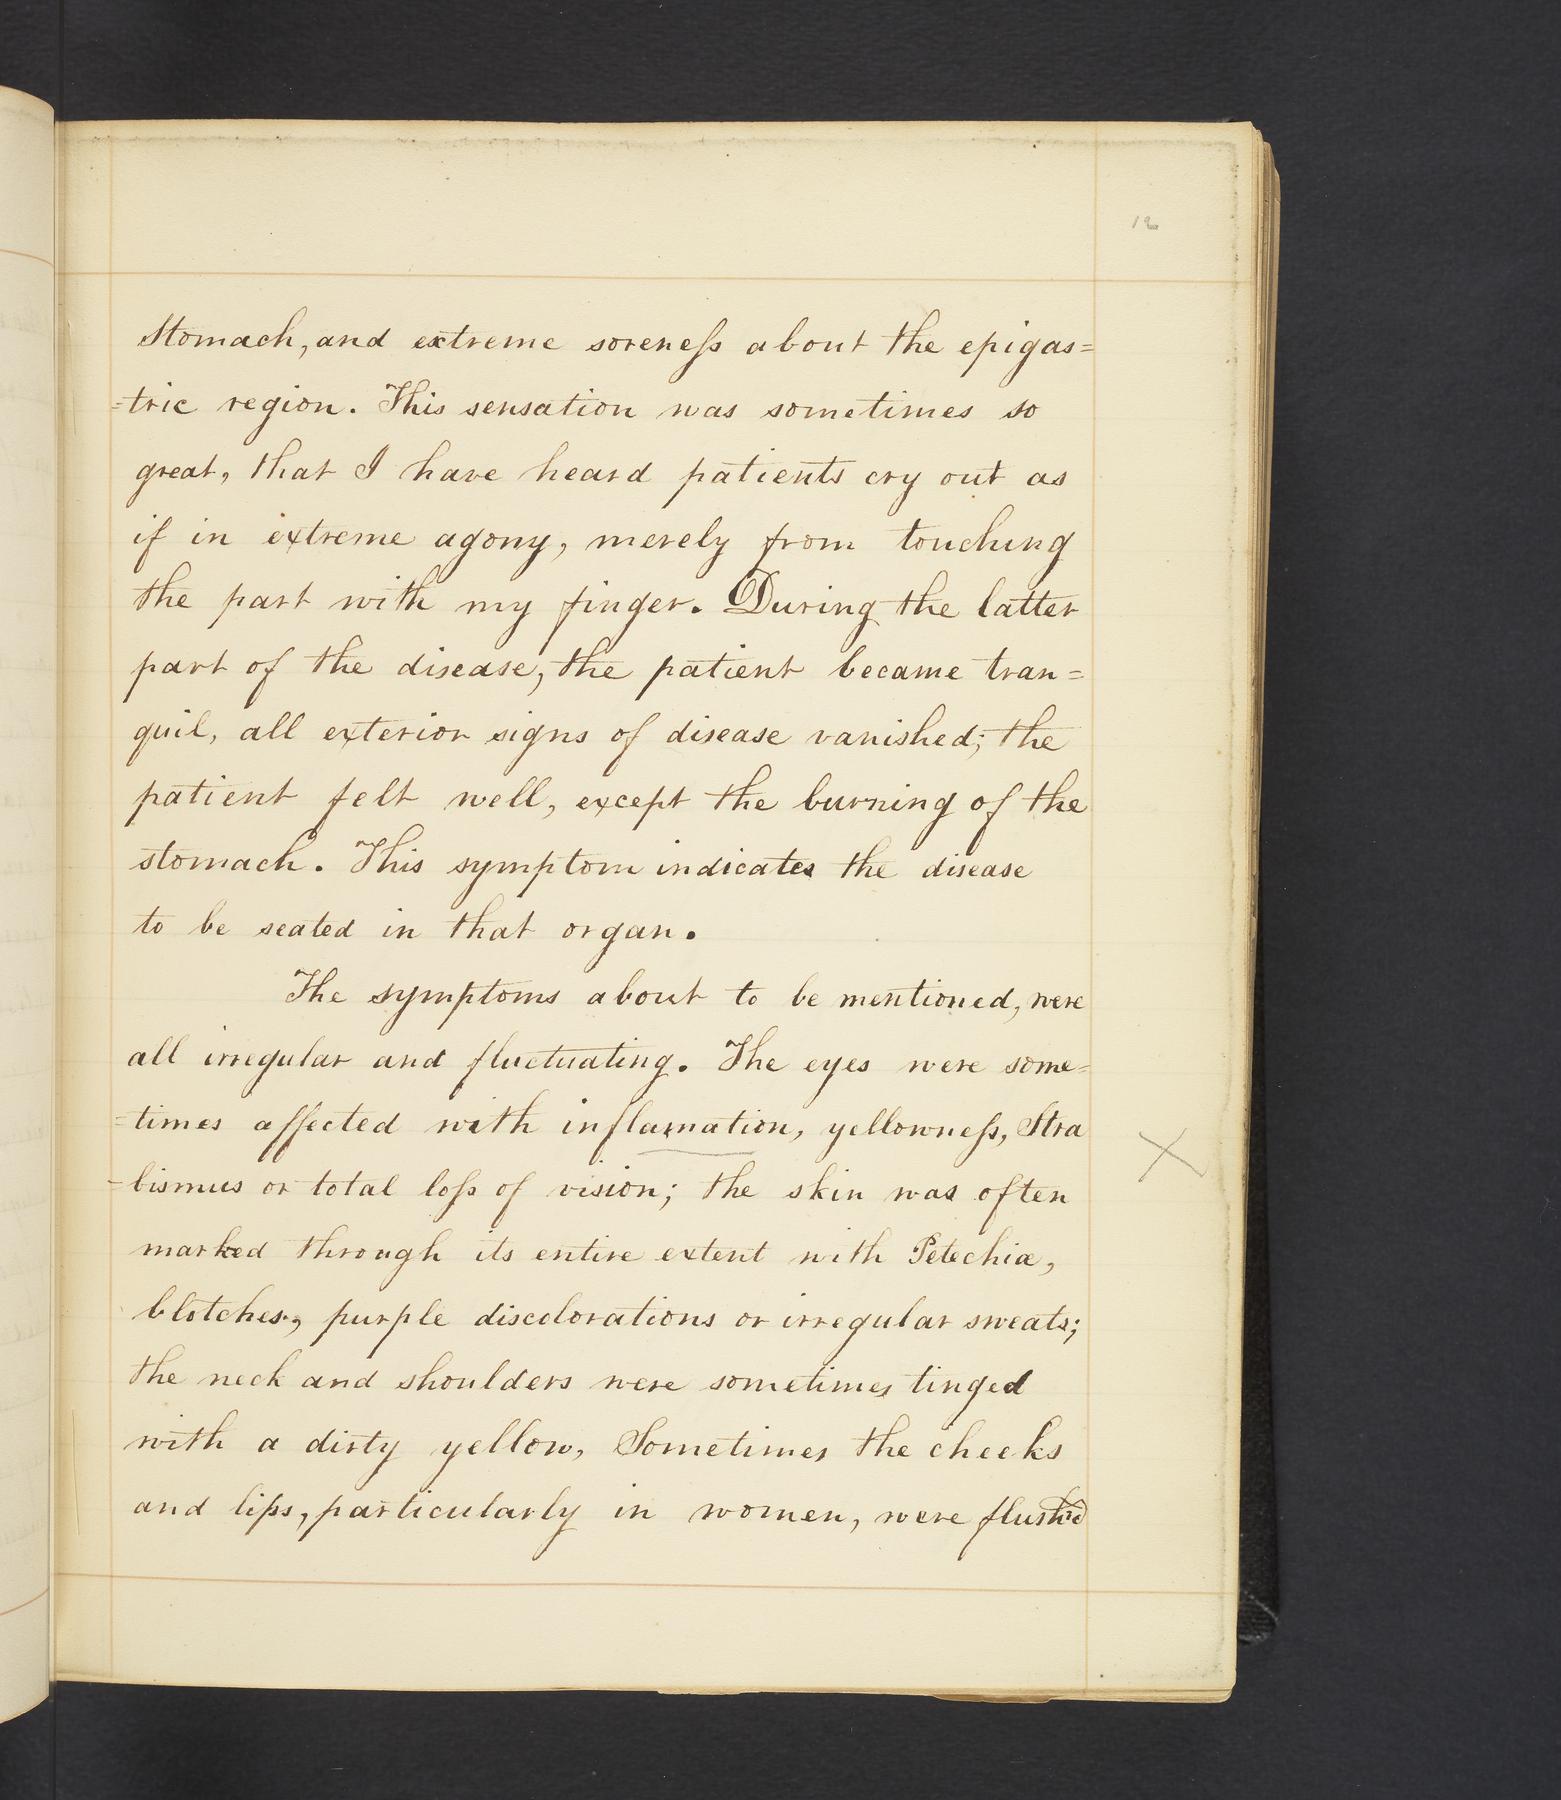 12
Stomach, and extreme soreneſs about the epigas=
=tric region. This sensation was sometimes so
great, that I have heard patients cry out as
if in extreme agony, merely from touching
the part with my finger. During the latter
part of the disease, the patient became tran=
quil, all exterior signs of disease vanished; the
patient felt well, except the burning of the
stomach. This symptom indicates the disease
to be seated in that organ.
The symptoms about to be mentioned, were
all irregular and fluctuating. The eyes were some=
=times affected with inflamation, yellowneſs, Stra
-bismus or total loſs of vision; the skin was often
marked through its entire extent with Petechiæ,
blotches, purple discolorations or irregular sweats;
the neck and shoulders were sometimes tinged
with a dirty yellow, Sometimes the cheeks
and lips, particularly in women, were flush'd
X